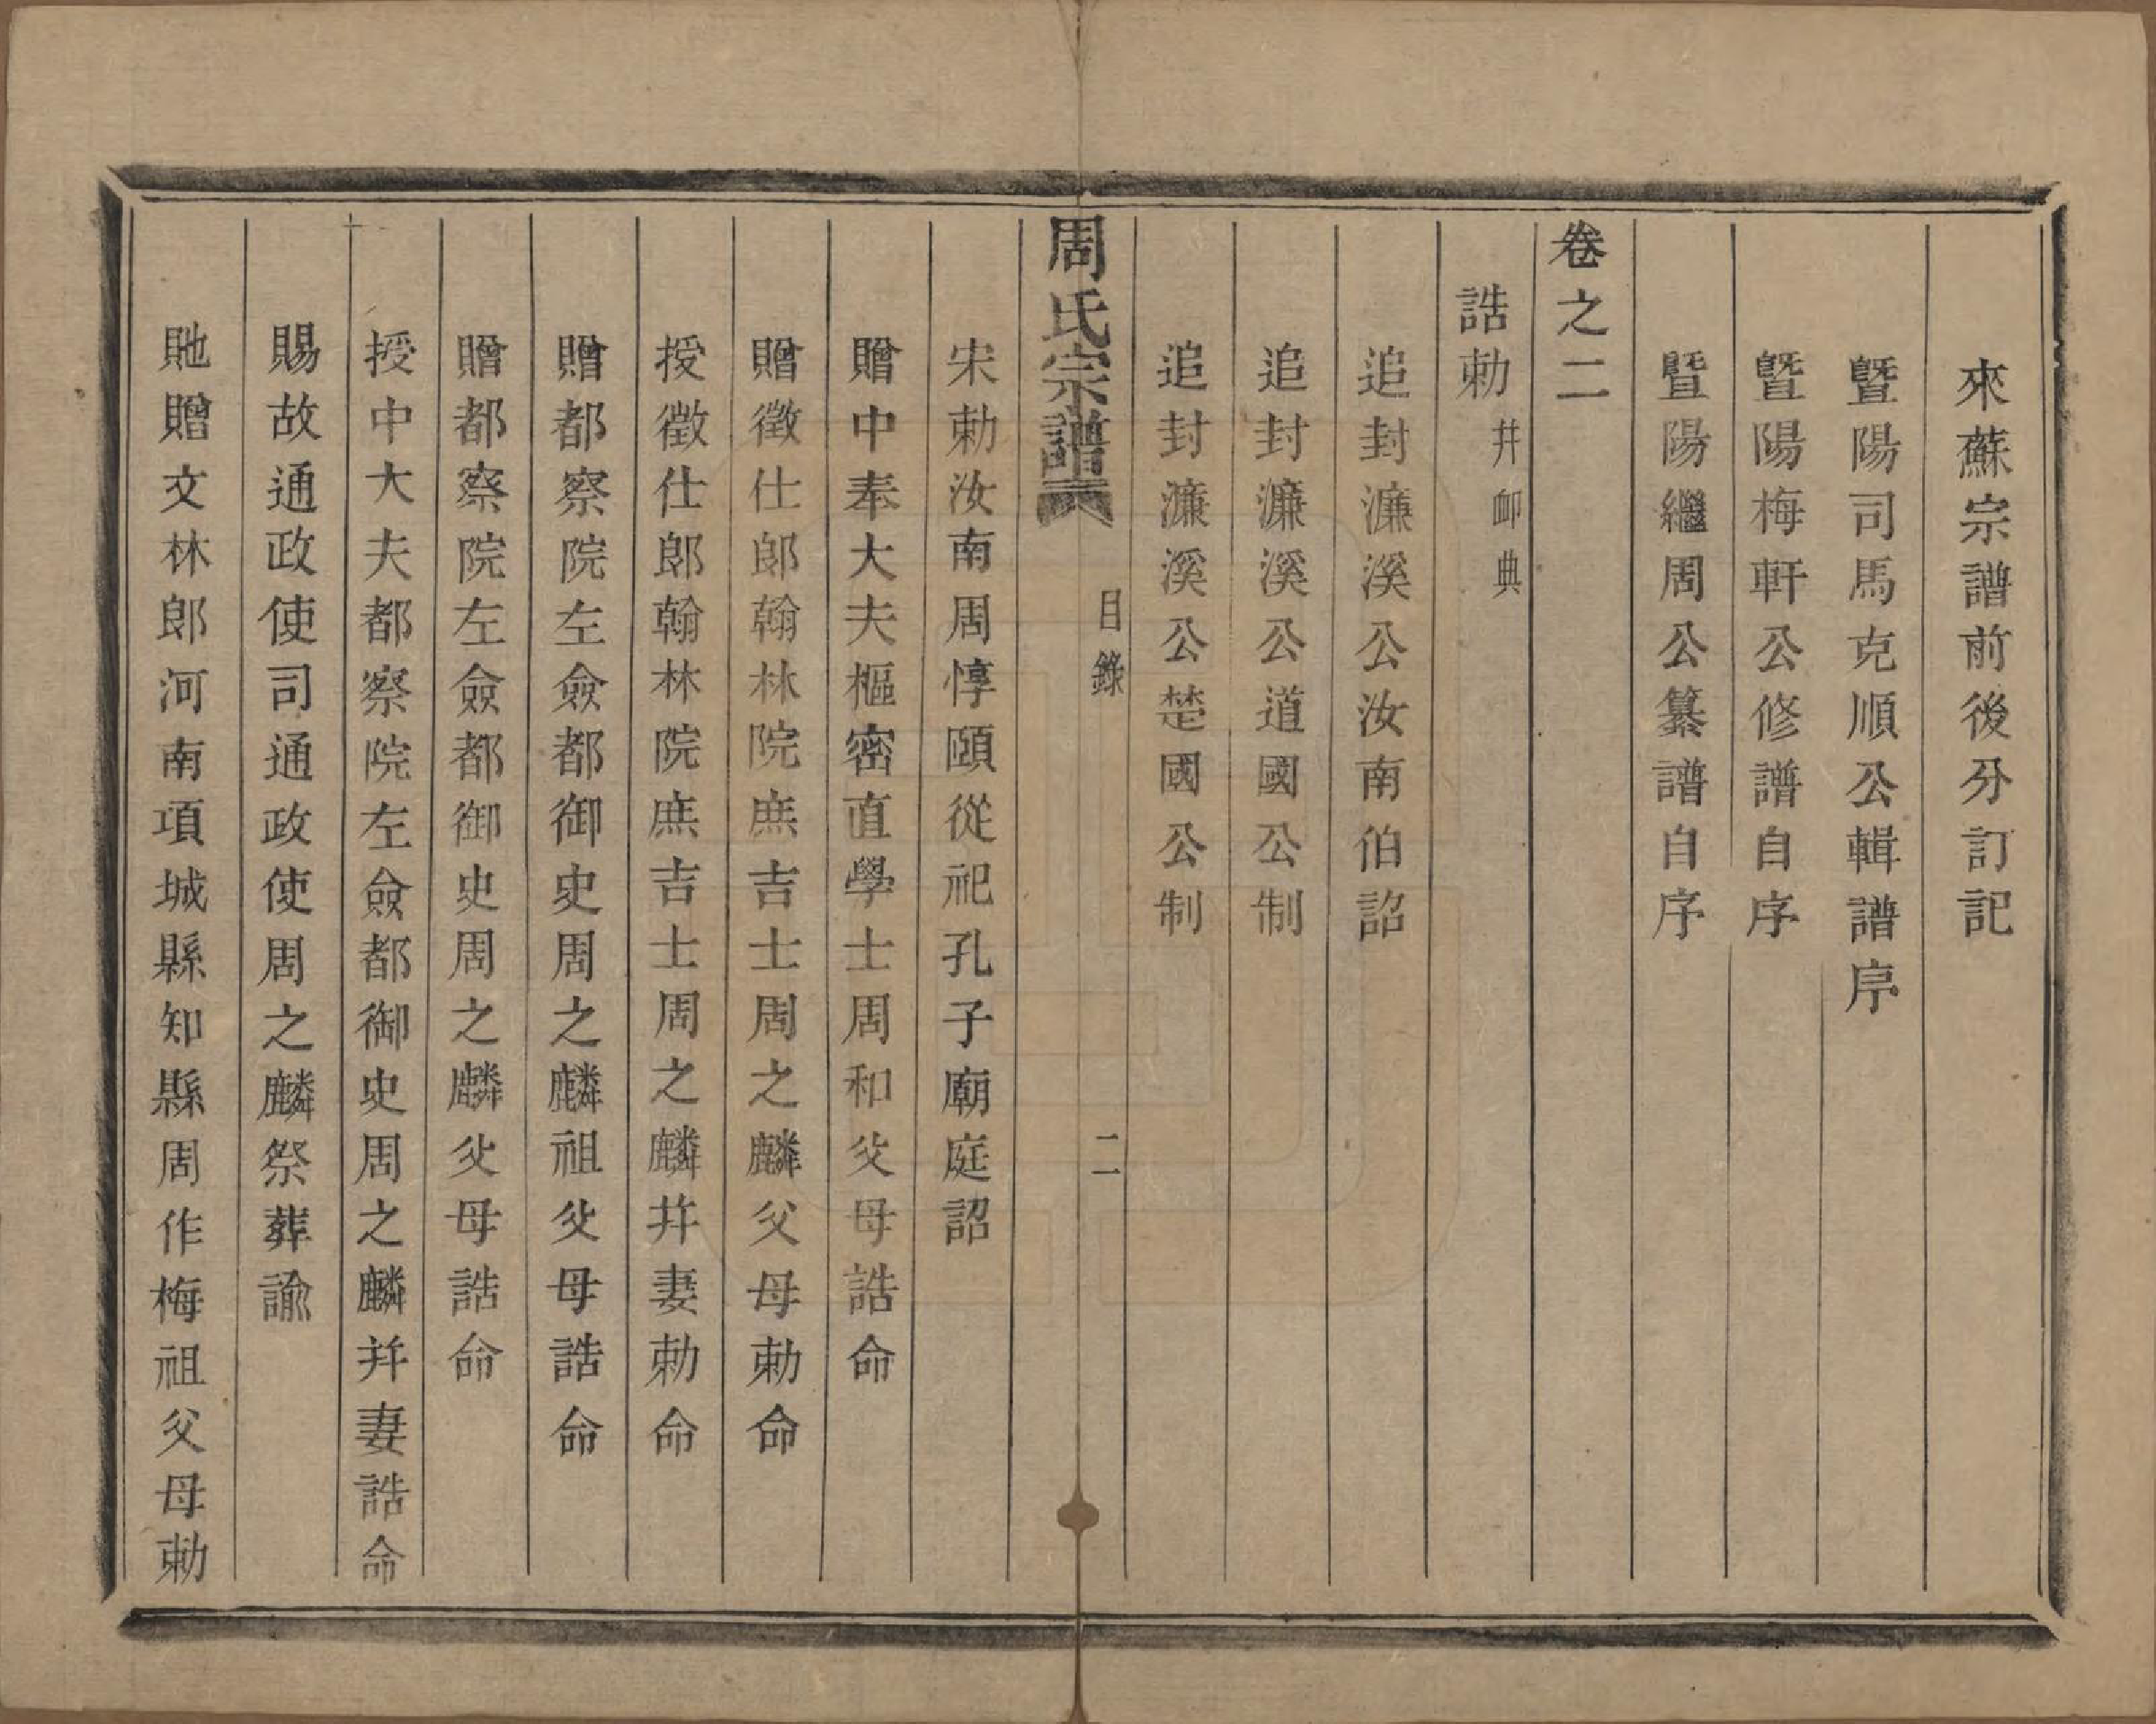 來蘇宗譜前後分訂記
暨陽司馬克順公輯譜序
暨陽梅軒公修譜自序
暨陽繼周公纂譜自序
卷之二
誥勅 幷卹典
追封濂溪公汝南伯詔
追封濂溪公道國公制
追封濂溪公楚國公制
周氏宗譜 目錄 二
宋勅汝南周惇頤從祀孔子廟庭詔
贈中奉大夫樞密直學士周和父母誥命
贈徵仕郎翰林院庶吉士周之麟父母勅命
授徵仕郎翰林院庶吉士周之麟幷妻勅命
贈都察院左僉都御史周之麟祖父母誥命
贈都察院左僉都御史周之麟父母誥命
授中大夫都察院左僉都御史周之麟幷妻誥命
賜故通政使司通政使周之麟祭葬諭
貤贈文林郎河南項城縣知縣周作梅祖父母勅